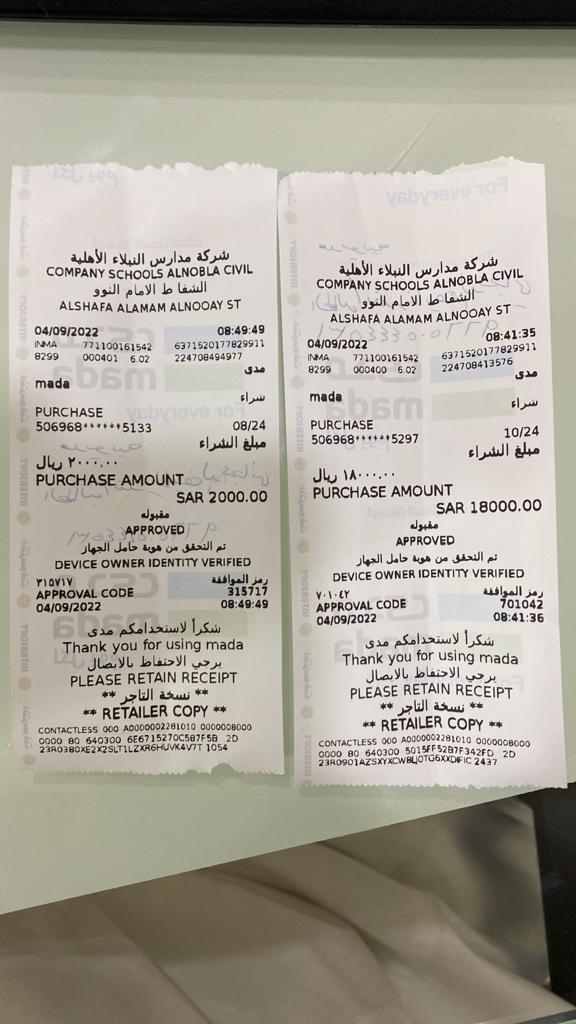 شركة مدارس النبلاء الأهلية
COMPANY SCHOOLS ALNOBLA CIVIL
الشفا ط الامام النوو
ALSHAFA ALAMAM ALNOOAY ST
04/09/2022 08:49:49
INMA 771100161542 6371520177829911
8299 000401 6.02 224708494977
مدى
mada
شراء
PURCHASE
506968******5133 08/24
مبلغ الشراء
٢٠٠٠.٠٠ ريال
PURCHASE AMOUNT
SAR 2000.00
مقبوله
APPROVED
تم التحقق من هوية حامل الجهاز
DEVICE OWNER IDENTITY VERIFIED
٣١٥٧١٧ رمز الموافقة
APPROVAL CODE 315717
04/09/2022 08:49:49
شكرأ لاستخدامكم مدى
Thank you for using mada
يرجي الاحتفاظ بالايصال
PLEASE RETAIN RECEIPT
** نسخة التاجر **
** RETAILER COPY **
CONTACTLESS 000 A0000002281010 0000008000
0000 80 640300 6E6715270C587F5B 2D
23R0380XE2X2SLT1LZXR6HUVK4V7T 1054
شركة مدارس النبلاء الأهلية
COMPANY SCHOOLS ALNOBLA CIVIL
الشفا ط الامام النوو
ALSHAFA ALAMAM ALNOOAY ST
04/09/2022 08:41:35
INMA 771100161542 6371520177829911
8299 000400 6.02 224708413576
مدى
mada
شراء
PURCHASE
506968******5297 10/24
مبلغ الشراء
١٨٠٠٠.٠٠ ريال
PURCHASE AMOUNT
SAR 18000.00
مقبوله
APPROVED
تم التحقق من هوية حامل الجهاز
DEVICE OWNER IDENTITY VERIFIED
٧٠١٠٤٢ رمز الموافقة
APPROVAL CODE 701042
04/09/2022 08:41:36
شكرأ لاستخدامكم مدى
Thank you for using mada
يرجي الاحتفاظ بالايصال
PLEASE RETAIN RECEIPT
** نسخة التاجر **
** RETAILER COPY **
CONTACTLESS 000 A0000002281010 0000008000
0000 80 640300 5015FF52B7F342FD 2D
23R0901AZSXYXCWBLJOTG6XXDIFIC 2437